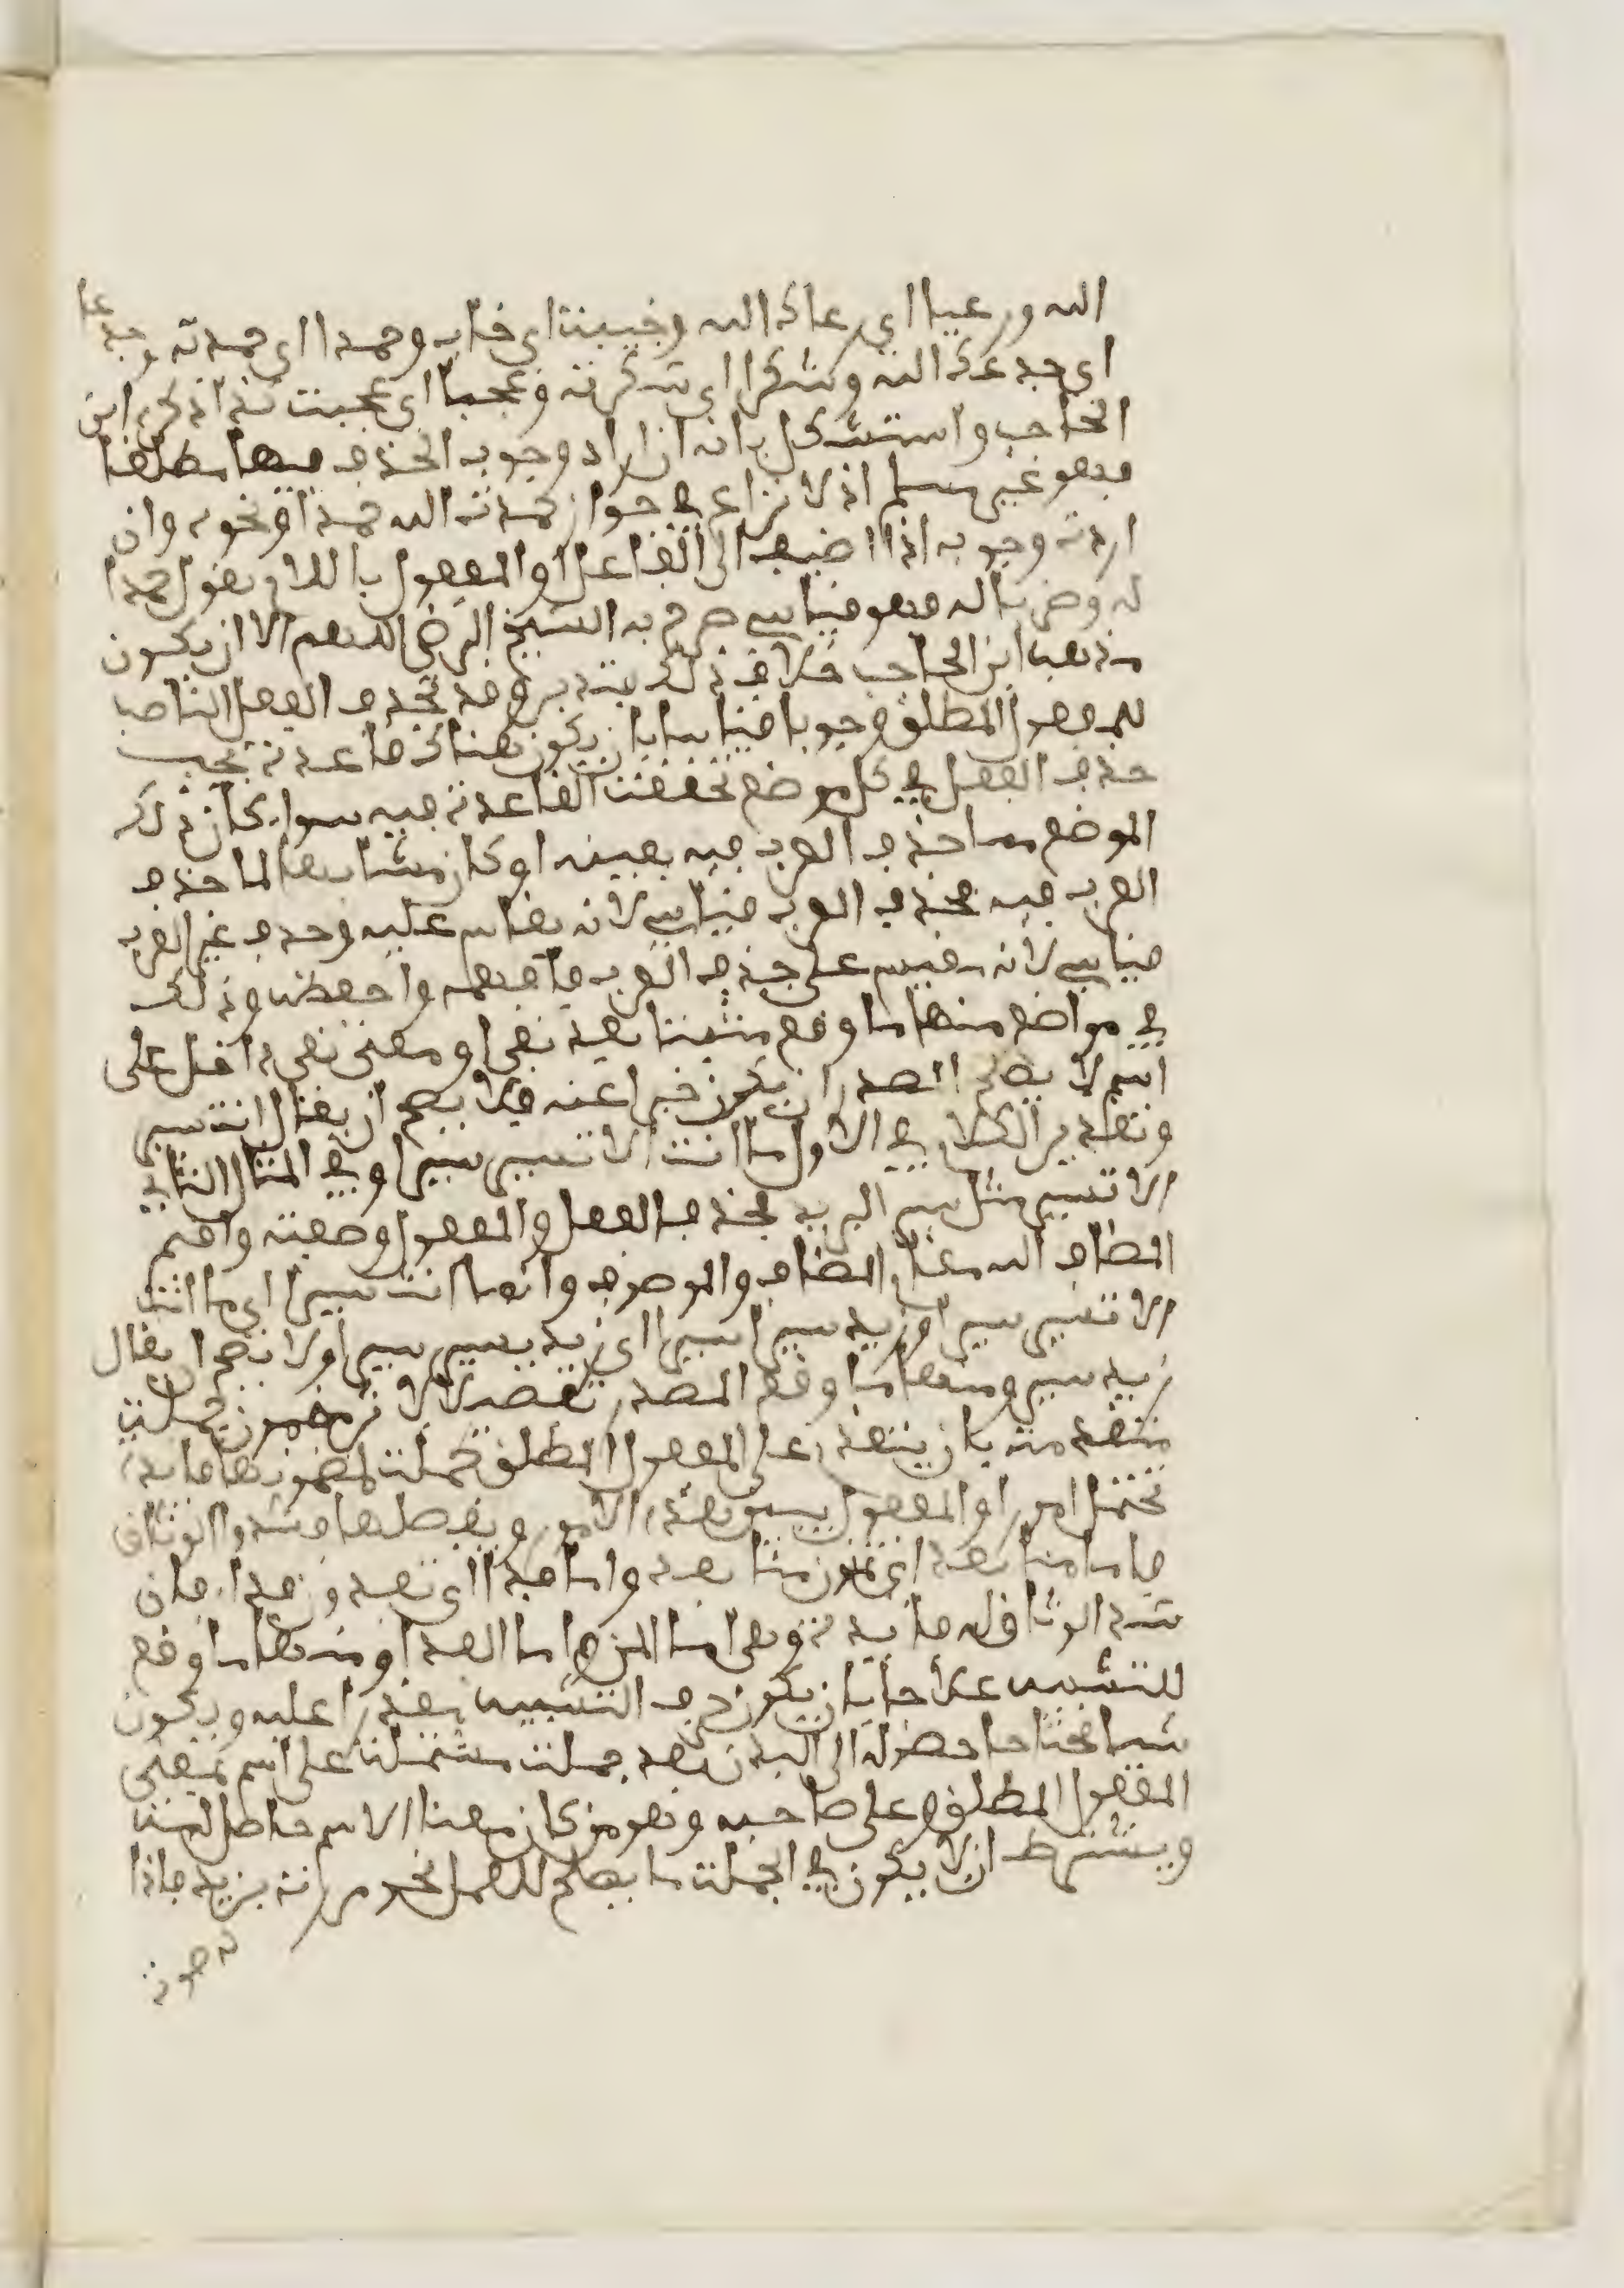 الله ورعيا اي رعاك الله وخيبة اي خاب وحمدا اي حمدته وجدعا
اي جدعك الله وشكرا اي شكرته وعجبا اي عجبت كذا ذكره ابن
الحاجب واستشكل بانه ان اراد وجوب الحذف فيها مطلقا
فهو غير مسلم اذ لا نزاع في جواز حمدت الله حمدا ونحوه وان
اردت وجوبه اذا اضيف الى الفاعل او المفعول باللام يقول حمدا
له وضربا له فهو قياسي صرح به الشيخ الرضي اللهم الا ان يكون
مذهب ابن الحاجب خلاف ذلك يتدبر وقد يحذف الفعل الناصب
للمفعول المطلق وجوبا قياسا بان يكون هناك قاعدة يجب
حذف الفعل في كل موضع تحققت القاعدة فيه سواء كان ذلك
الموضع مما حذف العرب فيه بعينه او كان مشابها لما حذف
العرب فيه فحذف العرب قياسي لانه يقاس عليه وحذف غير العرب
قياسي لانه يقيس على حذف العرب فافهمه واحفظه وذلك
في مواضع منها ما وقع مثبتا بعد نفي او معنى نفي داخل على
اسم لا يصلح المصدر ان يكون خبرا عنه فلا يصح ان يقال انت سير
وتقدير الكلام في الاول ما انت الا تسير سيرا وفي المثال الثاني
الا تسير مثل سير البريد فحذف الفعل والمفعول وصفته واقيم
المضاف اليه مقام المضاف والموصوف وانما انت سيرا اي ما انت
الا تسير سيرا وزيد سيرا سيرا اي زيد يسير سيرا ولا يصح ان يقال
زيد سير ومنها ما وقع المصدر تفصيلا لاثر مضمون جملة
متقدمة بان يتقدم على المفعول المطلق جملة لمضمونها فايدة
تحتمل امورا والمفعول يبين هذه الامور ويفصلها فشدوا الوثاق
فاما منا بعد اي تمنون منا بعد واما فداء اي تفدون فداء فان
شد الوثاق له فايدة وهي اما المن واما الفداء ومنها ما وقع
للتشبيه علاجا بان يكون حرف التشبيه مقدرا عليه ويكون
شيئا محتاجا حصوله الى البدن بعد جملة مشتملة على اسم بمعنى
المفعول المطلق وعلى صاحبه وهو من كان معنا الاسم حاصلا منه
ويشترط ان لا يكون في الجملة ما يصلح للعمل نحو مررت بزيد فاذا
له صوت